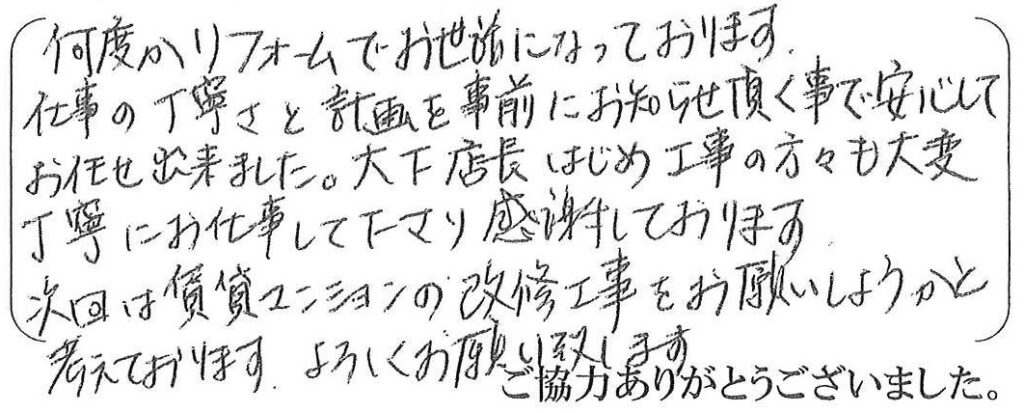 何度かリフォームでお世話になっております.
仕事の丁寧さと計画を事前にお知らせ頂く事で安心して
お任せ出来ました。大下店長はじめ工事の方々も大変
丁寧にお仕事して下さり感謝しております
次回は賃貸マンションの改修工事をお願いしようかと
考えております. よろしくお願い致します
ご協力ありがとうございました。